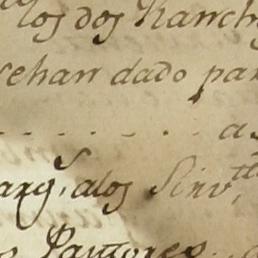 los dos Ranch
sehan dado par
a
arg.s alos Sirv.tes
Pastores